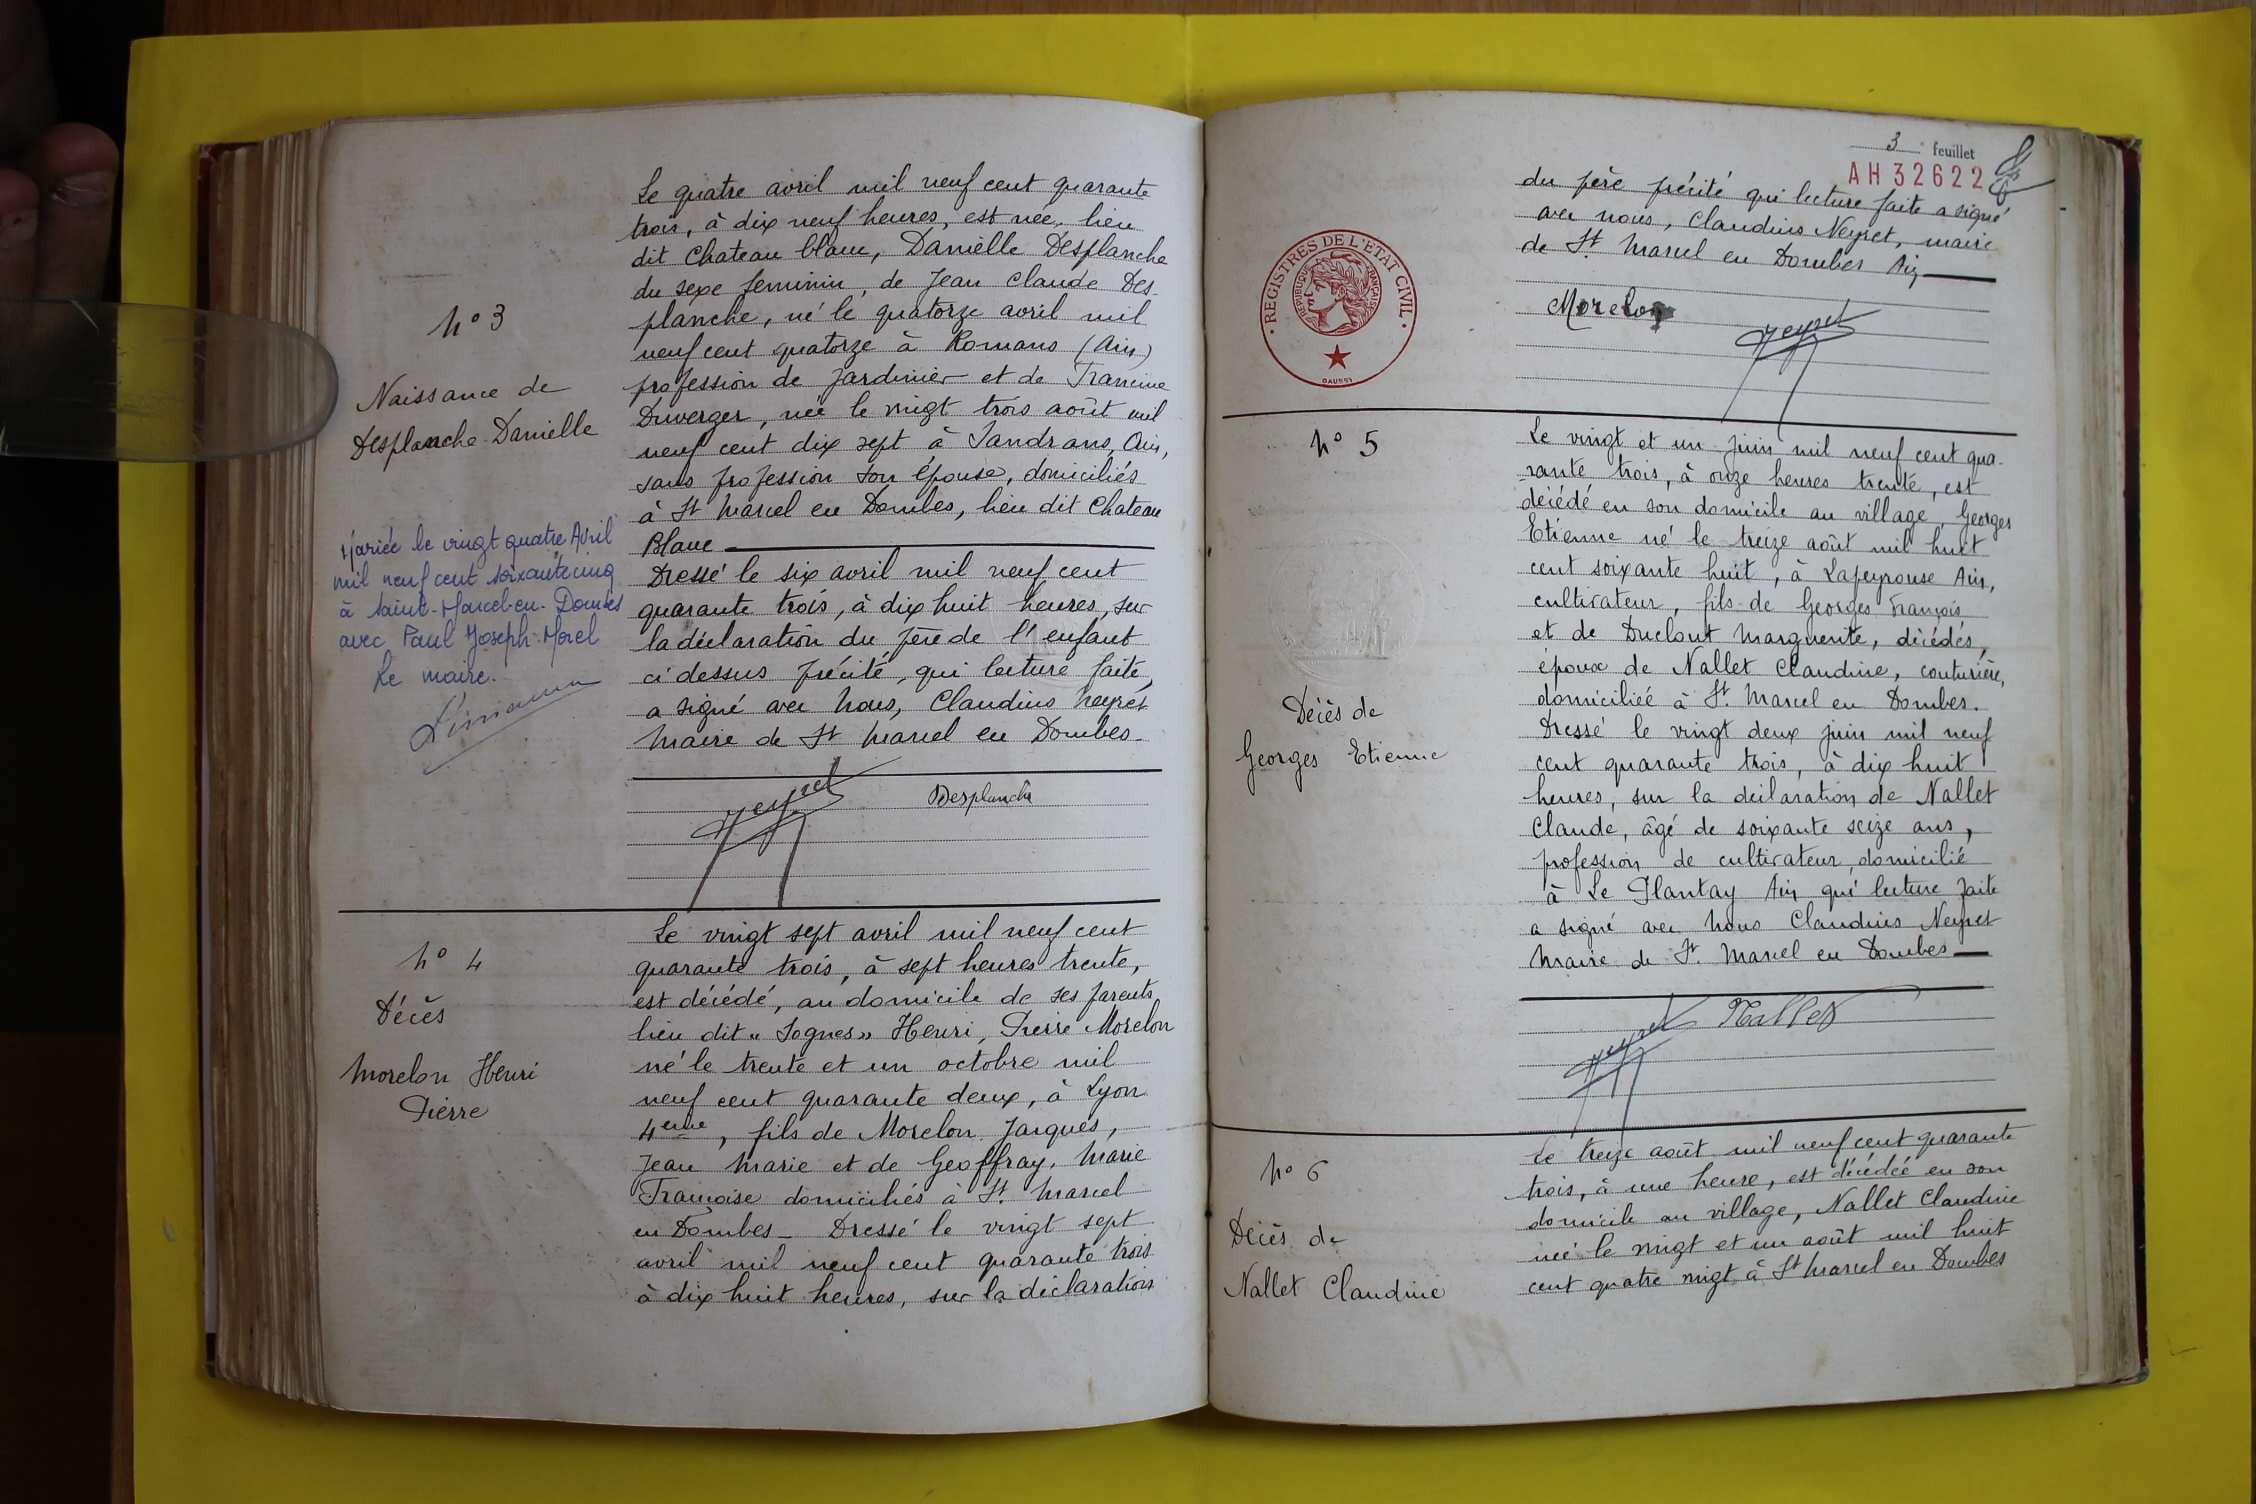 N° 3
Naissance de
Desplanche Danielle
Mariée le vingt quatre Avril
mil neuf cent soixante cinq
à Saint-Marcel-en-Dombes
avec Paul Joseph Morel
Le maire.
Le quatre avril mil neuf cent quarante
trois, à dix neuf heures, est née, lieu
dit Chateau blanc, Danielle Desplanche
du sexe feminin, de Jean Claude Des
planche, né le quatorze avril mil
neuf cent quatorze à Romans (Ain)
profession de Jardinier et de Francine
Duverger, née le vingt trois août mil
neuf cent dix sept à Sandrans, Ain,
sans profession son épouse, domiciliés
à St Marcel en Dombes, lieu dit Chateau
Blanc
Dressé le six avril mil neuf cent
quarante trois, à dix huit heures, sur
la déclaration du père de l'enfant
ci dessus précité, qui lecture faite,
a signé avec Nous, Claudius Neyret
Maire de St Marcel en Dombes.
Neyret Desplanche
N° 4
Décès
Morelon Henri
Pierre
Le vingt sept avril mil neuf cent
quarante trois, à sept heures trente,
est décédé, au domicile de ses parents
lieu dit "Sognes" Henri, Pierre Morelon
né le trente et un octobre mil
neuf cent quarante deux, à Lyon
4eme, fils de Morelon Jacques,
Jean Marie et de Geoffray, Marie
Françoise domiciliés à St. Marcel
en Dombes_ Dressé le vingt sept
avril mil neuf cent quarante trois
à dix huit heures, sur la déclaration
3e feuillet
AH 32622
du père précité qui lecture faite a signé
avec nous, Claudius Neyret, maire
de St. Marcel en Dombes Ain
REGISTRES DE L'ETAT CIVIL
REPUBLIQUE FRANÇAISE
DAUSSY
Morelon Neyret
N° 5
Décès de
Georges Etienne
Le vingt et un juin mil neuf cent qua-
rante trois, à onze heures trente, est
décédé en son domicile au village, Georges
Etienne né le treize août mil huit
cent soixante huit, à Lapeyrouse Ain,
cultivateur, fils de Georges François
et de Duclout Marguerite, décédés,
époux de Nallet Claudine, couturière,
domiciliée à St. Marcel en Dombes.
Dressé le vingt deux juin mil neuf
cent quarante trois, à dix huit
heures, sur la déclaration de Nallet
Claude, âgé de soixante seize ans,
profession de cultivateur domicilié
à Le Plantay Ain qui lecture faite
a signé avec Nous Claudius Neyret
Maire de St. Marcel en Dombes
Neyret Nallet
N° 6
Décès de
Nallet Claudine
Le treize août mil neuf cent quarante
trois, à une heure, est décédée en son
domicile au village, Nallet Claudine
née le vingt et un août mil huit
cent quatre vingt à St Marcel en Dombes